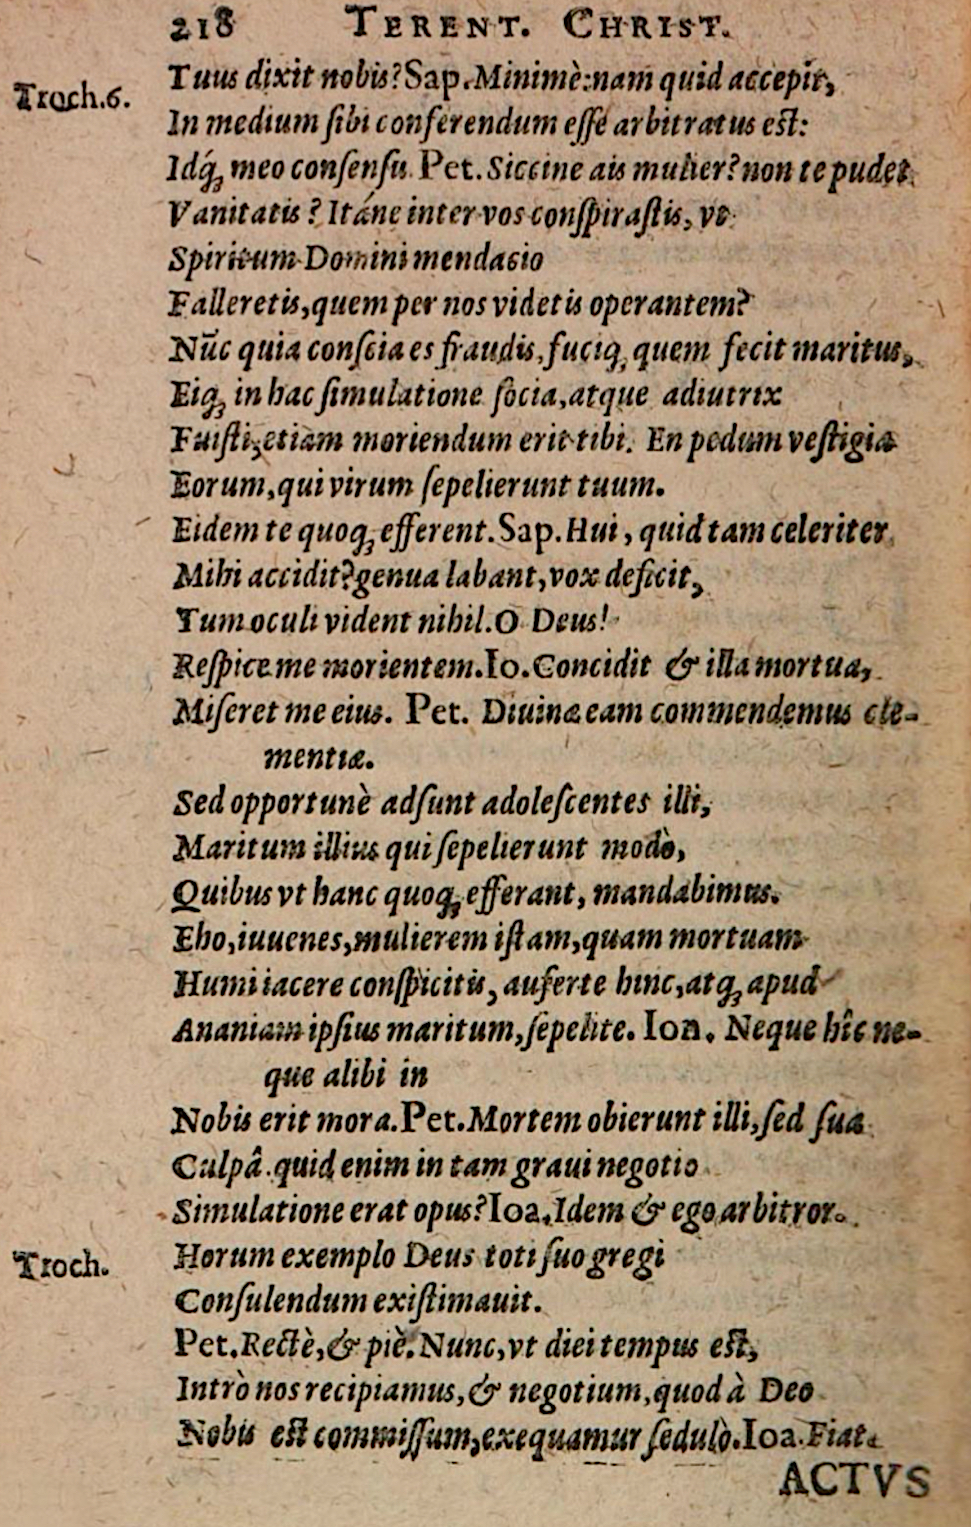 218 TERENT. CHRIST.
Tuus dixit nobis? Sap. Minimè: nam quid accepit,
Troch.6.
In medium ſibi conferendum eſſe arbitratus eſt:
Idq́ꝫ meo conſenſu. Pet. Siccine ais mulier? non te pudet
Vanitatis? Itáne inter vos conſpiraſtis, vt
Spiritum Domini mendacio
Falleretis, quem per nos videtis operantem?
Nūc quia conſcia es fraudis, fuciqꝫ quem fecit maritus,
Eiqꝫ in hac ſimulatione ſocia, atque adiutrix
Fuiſti, etiam moriendum erit tibi. En pedum veſtigia
Eorum, qui virum ſepelierunt tuum.
Eidem te quoqꝫ efferent. Sap. Hui, quid tam celeriter
Mihi accidit? genua labant, vox deficit,
Tum oculi vident nihil. O Deus!
Reſpice me morientem. Io. Concidit & illa mortua,
Miſeret me eius. Pet. Diuinæ eam commendemus cle-
mentiæ.
Sed opportunè adſunt adoleſcentes illi,
Maritum illius qui ſepelierunt modò,
Quibus vt hanc quoqꝫ efferant, mandabimus.
Eho, iuuenes, mulierem iſtam, quam mortuam
Humi iacere conſpicitis, auferte hinc, atqꝫ apud
Ananiam ipſius maritum, ſepelite. Ion. Neque hîc ne-
que alibi in
Nobis erit mora. Pet. Mortem obierunt illi, ſed ſua
Culpâ. quid enim in tam graui negotio
Simulatione erat opus? Ioa. Idem & ego arbitror.
Troch.
Horum exemplo Deus toti ſuo gregi
Conſulendum exiſtimauit.
Pet. Rectè, & piè. Nunc, vt diei tempus eſt,
Intrò nos recipiamus, & negotium, quod à Deo
Nobis eſt commiſſum, exequamur ſedulò. Ioa. Fiat.
ACTVS